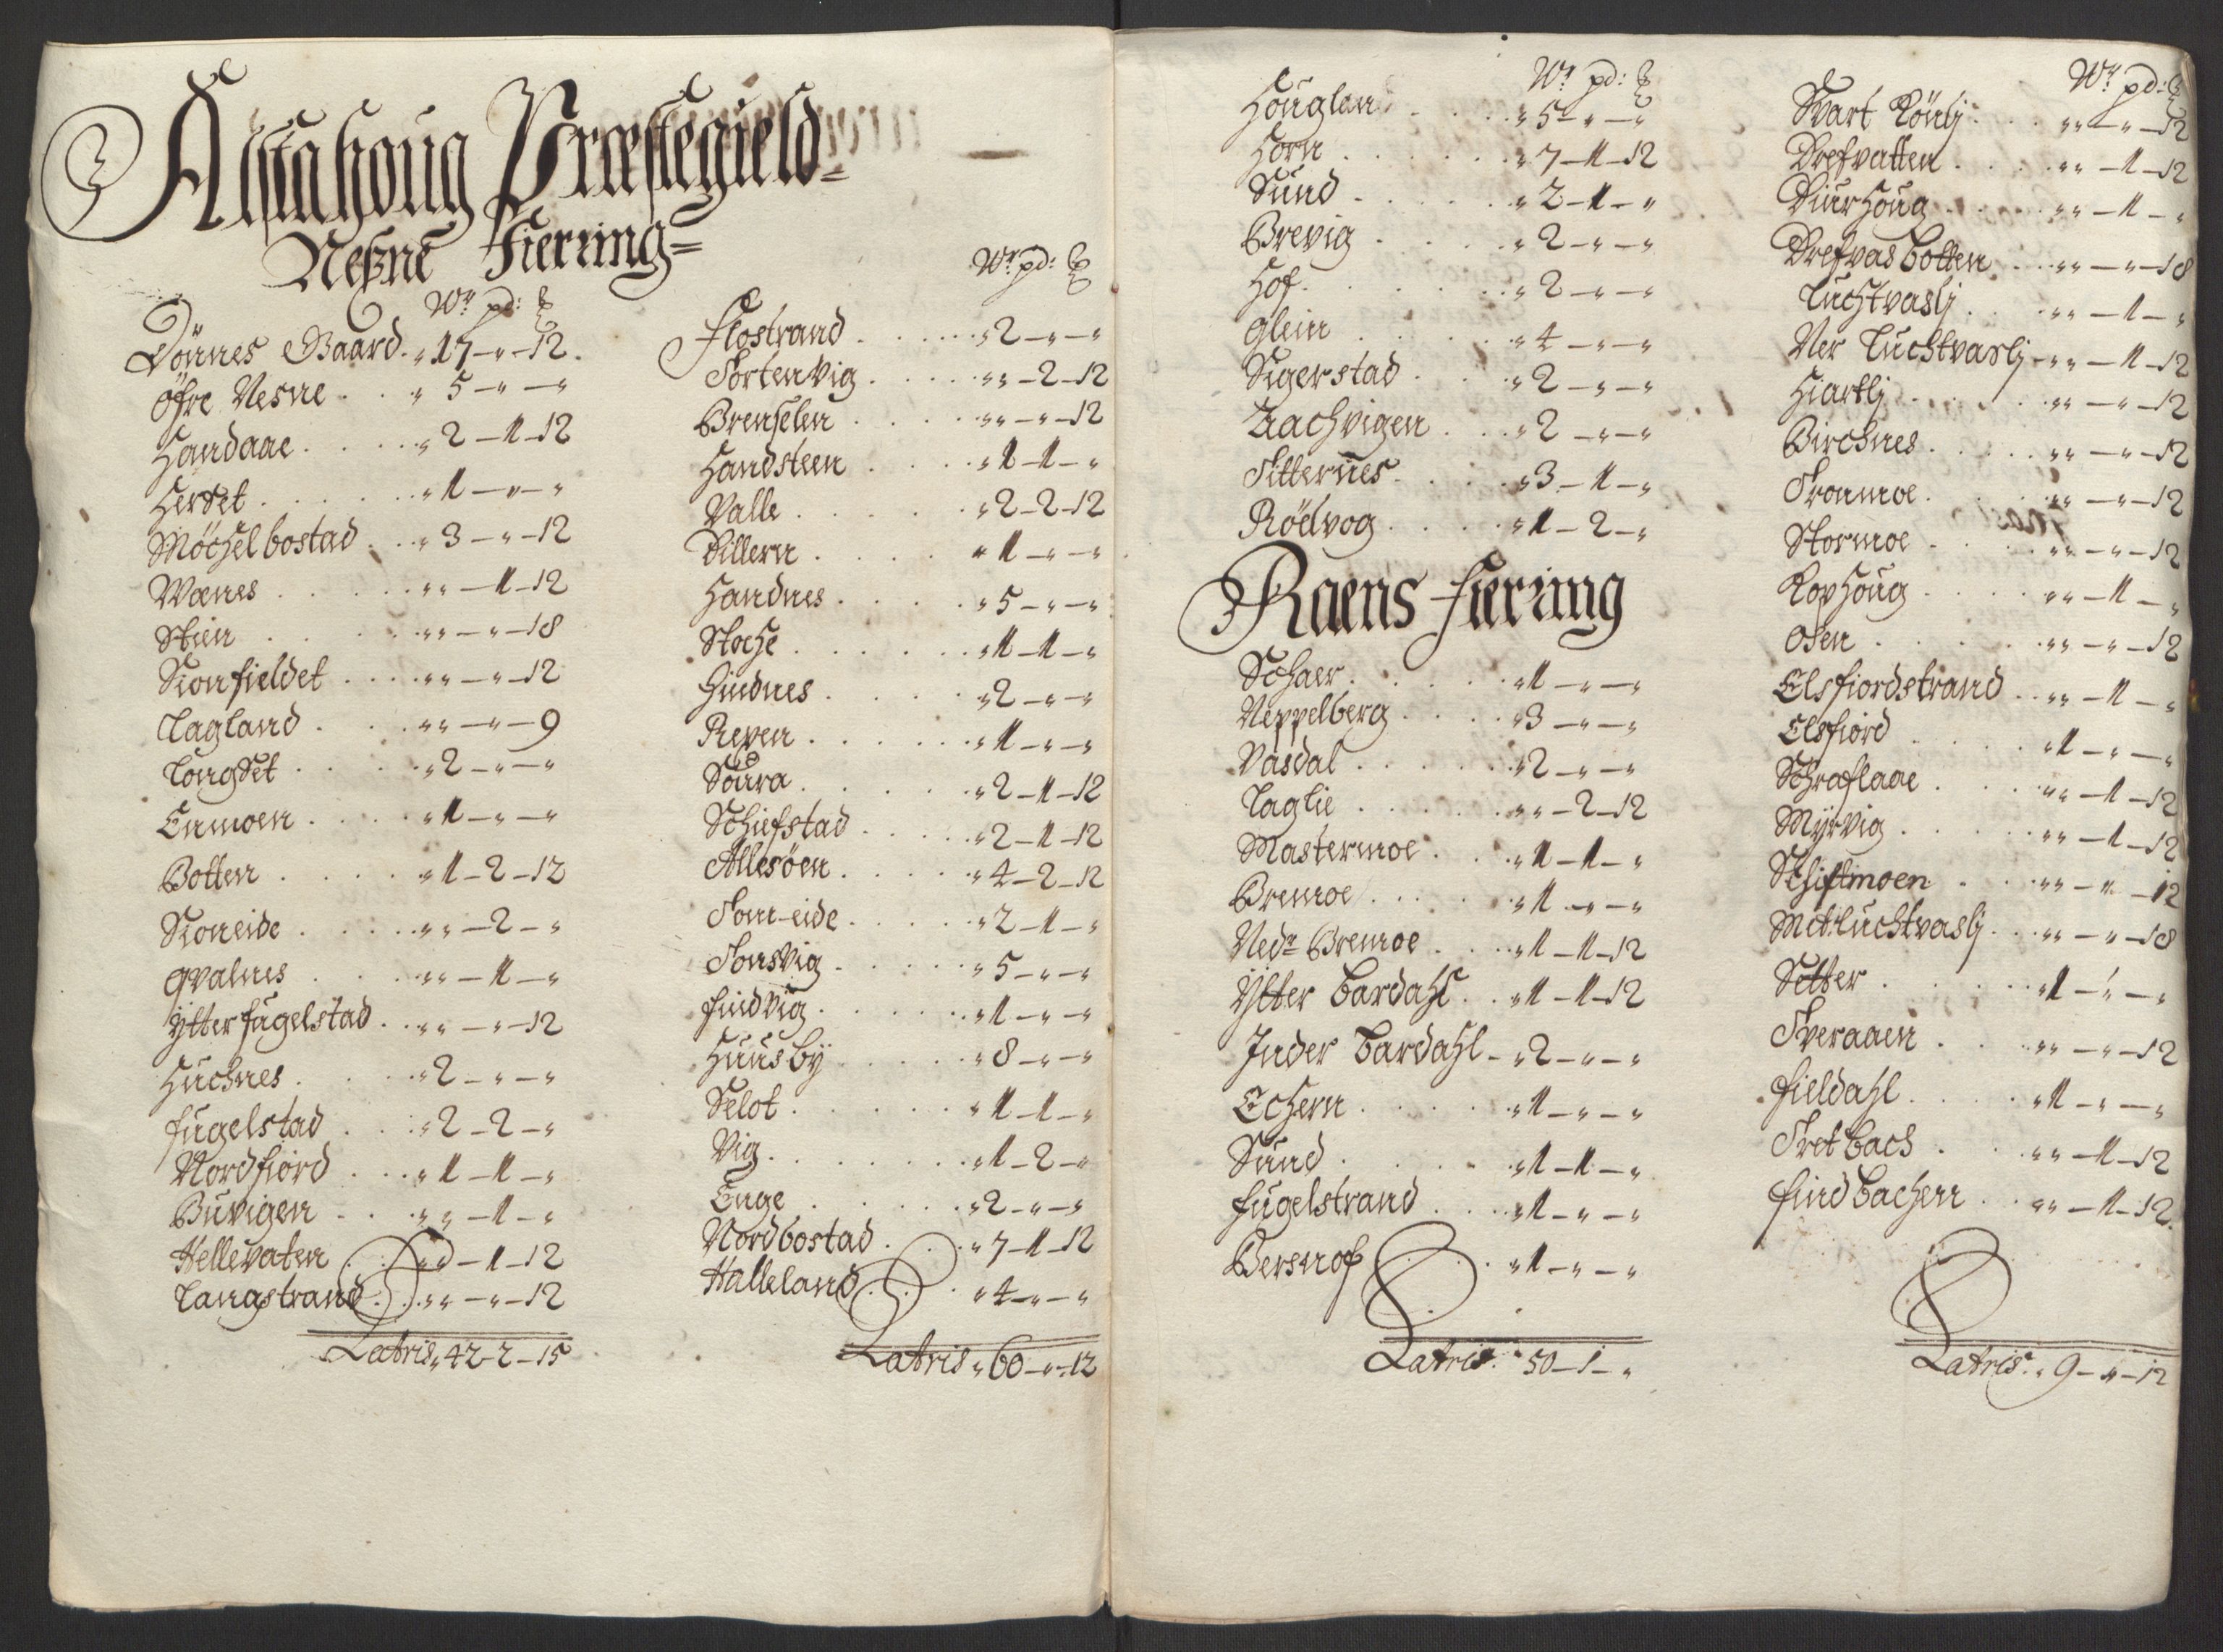 Alstahoug Præstegield=
Nessne Fierring=
Wr pd: ℔
Dönnes Gaard . „ 17 – „ – 12.
Öfre Nesne . . „ 5 – „ – „
Handaae . . . „ 2 – 1 – 12
Herset . . . „ 1 – „ – „
Möchelbostad . . „ 3 – „ – 12
Wænes . . . „ „ – 1 – 12
Stien . . . „ „ – „ – 18
Sionfieldet . . . „ „ – „ – 12
Lagland . . . „ „ – „ – 9
LongSet . . . „ 2 – „ – „
Enmoen . . . „ 1 – „ – „
Botten . . . „ 1 – 2 – 12
Sioneide . . . „ „ – 2 – „
qvalnes . . . „ „ – 1 – „
Ytter fugelstad . . „ „ – „ – 12
Huchnes . . . „ 2 – „ – „
fugelstad . . . „ 2 – 2 – „
Nordfiord . . . „ 1 – 1 – „
Buvigen . . . „ „ – 1 – „
Hellevaten . . . „ „ – 1 – 12
Langstrand . . . „ „ – „ – 12
Latris „ 42 – 2 – 15
Wr pd: ℔
Flostrand . . . „ 2 – „ – „
Sortenvig . . . „ „ – 2 – 12
Brenselen . . . „ „ – „ – 12
Handsteen . . . „ 1 – 1 – „
Valle . . . „ 2 – 2 – 12
Dillern . . . „ 1 – „ – „
Handnes . . . „ 5 – „ – „
Stoche . . . „ 1 – 1 – „
Hindnes . . . „ 2 – „ – „
Reven . . . „ 1 – „ – „
Soura . . . „ 2 – 1 – 12
Schiefstad . . . „ 2 – 1 – 12
Allesöen . . . „ 4 – 2 – 12
Som-eide . . . „ 2 – 1 – „
Sonsvig . . . „ 5 – „ – „
findvig . . . „ 1 – „ – „
Huusbÿ . . . „ 8 – „ – „
Selot . . . „ 1 – 1 – „
Vig . . . „ 1 – 2 – „
Enge . . . „ 2 – „ – „
Nordbostad . . . „ 7 – 1 – 12
Halleland . . . „ 4 – „ – „
Latris „ 60 – „ – 12
Wr pd: ℔
Houglan . . . „ 5 – „ – „
Horn . . . „ 7 – 1 – 12
Sund . . . „ 2 – 1 – „
Brevig . . . „ 2 – „ – „
Hof . . . „ 2 – „ – „
Glein . . . „ 4 – „ – „
Sigerstad . . . „ 2 – „ – „
Aachvigen . . . „ 2 – „ – „
Sitternes . . . „ 3 – 1 – „
Rödvog . . . „ 1 – 2 – „
Raens Fierring
Schaer . . . „ 1 – „ – „
Neppelberg . . . „ 3 – „ – „
Vasdal . . . „ 2 – „ – „
Laglie . . . „ „ – 2 – 12
Mastermoe . . . „ 1 – 1 – „
Bremoe . . . „ 1 – „ – „
Nedr Bremoe . . . „ 1 – 1 – 12
Ytter Bardahl . . „ 1 – 1 – 12
Inder Bardahl – „ 2 – „ – „
Echern . . . „ 1 – „ – „
Sund . . . „ 1 – 1 – „
fugelstrand . . . „ 1 – „ – „
Bersnof . . . „ 1 – „ – „
Latris „ 50 – 1 – „
Wr pd: ℔
Svart Rönlj . . . „ „ – „ – 12
Drefvatten . . . „ „ – 1 – 12
Diurhoug . . . „ „ – 1 – „
Drefvasbotten . . . „ „ – „ – 18
Luchtvaslj . . . „ „ – 1 – „
Ner Luchtvaslj – „ „ – 1 – 12
Hiartlj . . . „ „ – „ – 12
Birchnes . . . „ „ – „ – 12
Tronmoe . . . „ „ – „ – 12
Stormoe . . . „ „ – „ – 12
Rovhoug . . . „ „ – 1 – „
Osen . . . „ „ – „ – 12
Elsfiordstrand . . „ „ – 1 – „
Elsfiord . . . „ 1 – „ – „
Schraflaae . . . „ „ – 1 – 12
Mÿrvig . . . „ „ – 1 – 12
Schiflmoen . . . „ „ – „ – 12
Mit:luchtvaslj . . „ „ – „ – 18
Setter . . . „ 1 – „ – „
Sveraaen . . . „ „ – „ – 12
fieldahl . . . „ 1 – „ – „
Tretbach . . . „ „ – 1 – 12
findbachen . . . „ „ – 1 – 12.
Latris „ 9 – „ – 12